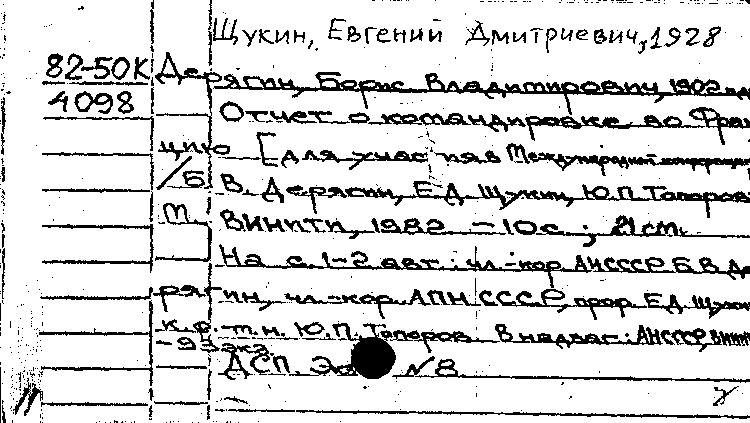 Щукин, Евгений Дмитриевич, 1928
82-50К Дерягин, Борис Владимирович, 1902
4098 Отчет о командировке во Фран
цию [для участия в Международной конференции
/Б. В. Дерягин, Е.Д. Щукин, Ю.П. Топоров
М. ВИНИТИ, 1982. - 10 с.; 21 см.
На с. 1-2 авт.: чл.-кор. АН СССР Б.В. Де
рягин, чл.-кор. АПН СССР, проф. Е.Д. Щукин
к.ф.-м.н. Ю.П. Топоров. В надзаг.: АН СССР, ВИНИТИ
- 95 экз.
ДСП. Экз №8.